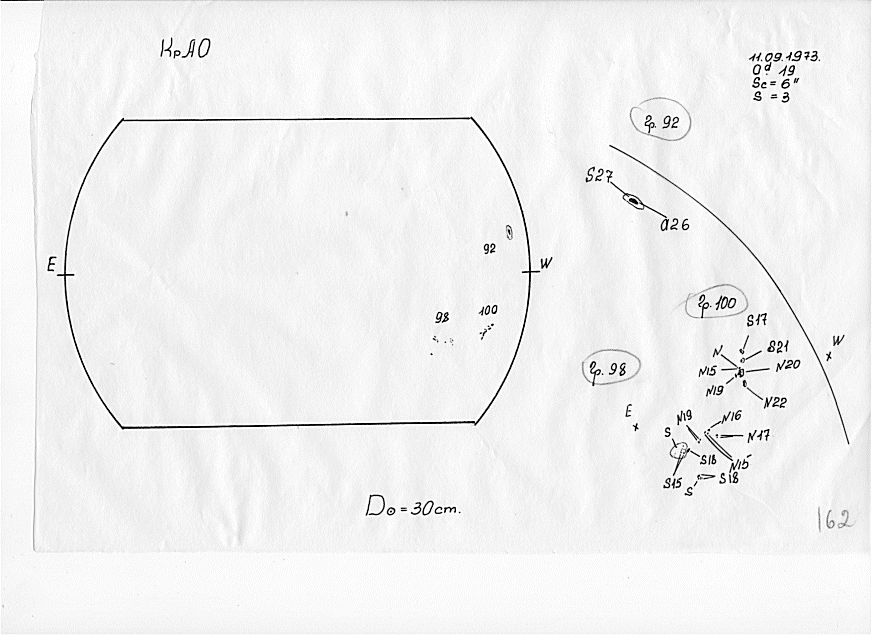 КрАО
11.09.1973.
0ᵈ 19
Sc = 6"
S = 3
Гр. 92
S27
α26
E
W
92
98
100
Гр. 100
S17
N
S21
N15
N20
N19
N22
W
Гр. 98
E
N19
N16
S
N17
S18
N15
S15
S
S18
D⊙ = 30 cm.
162